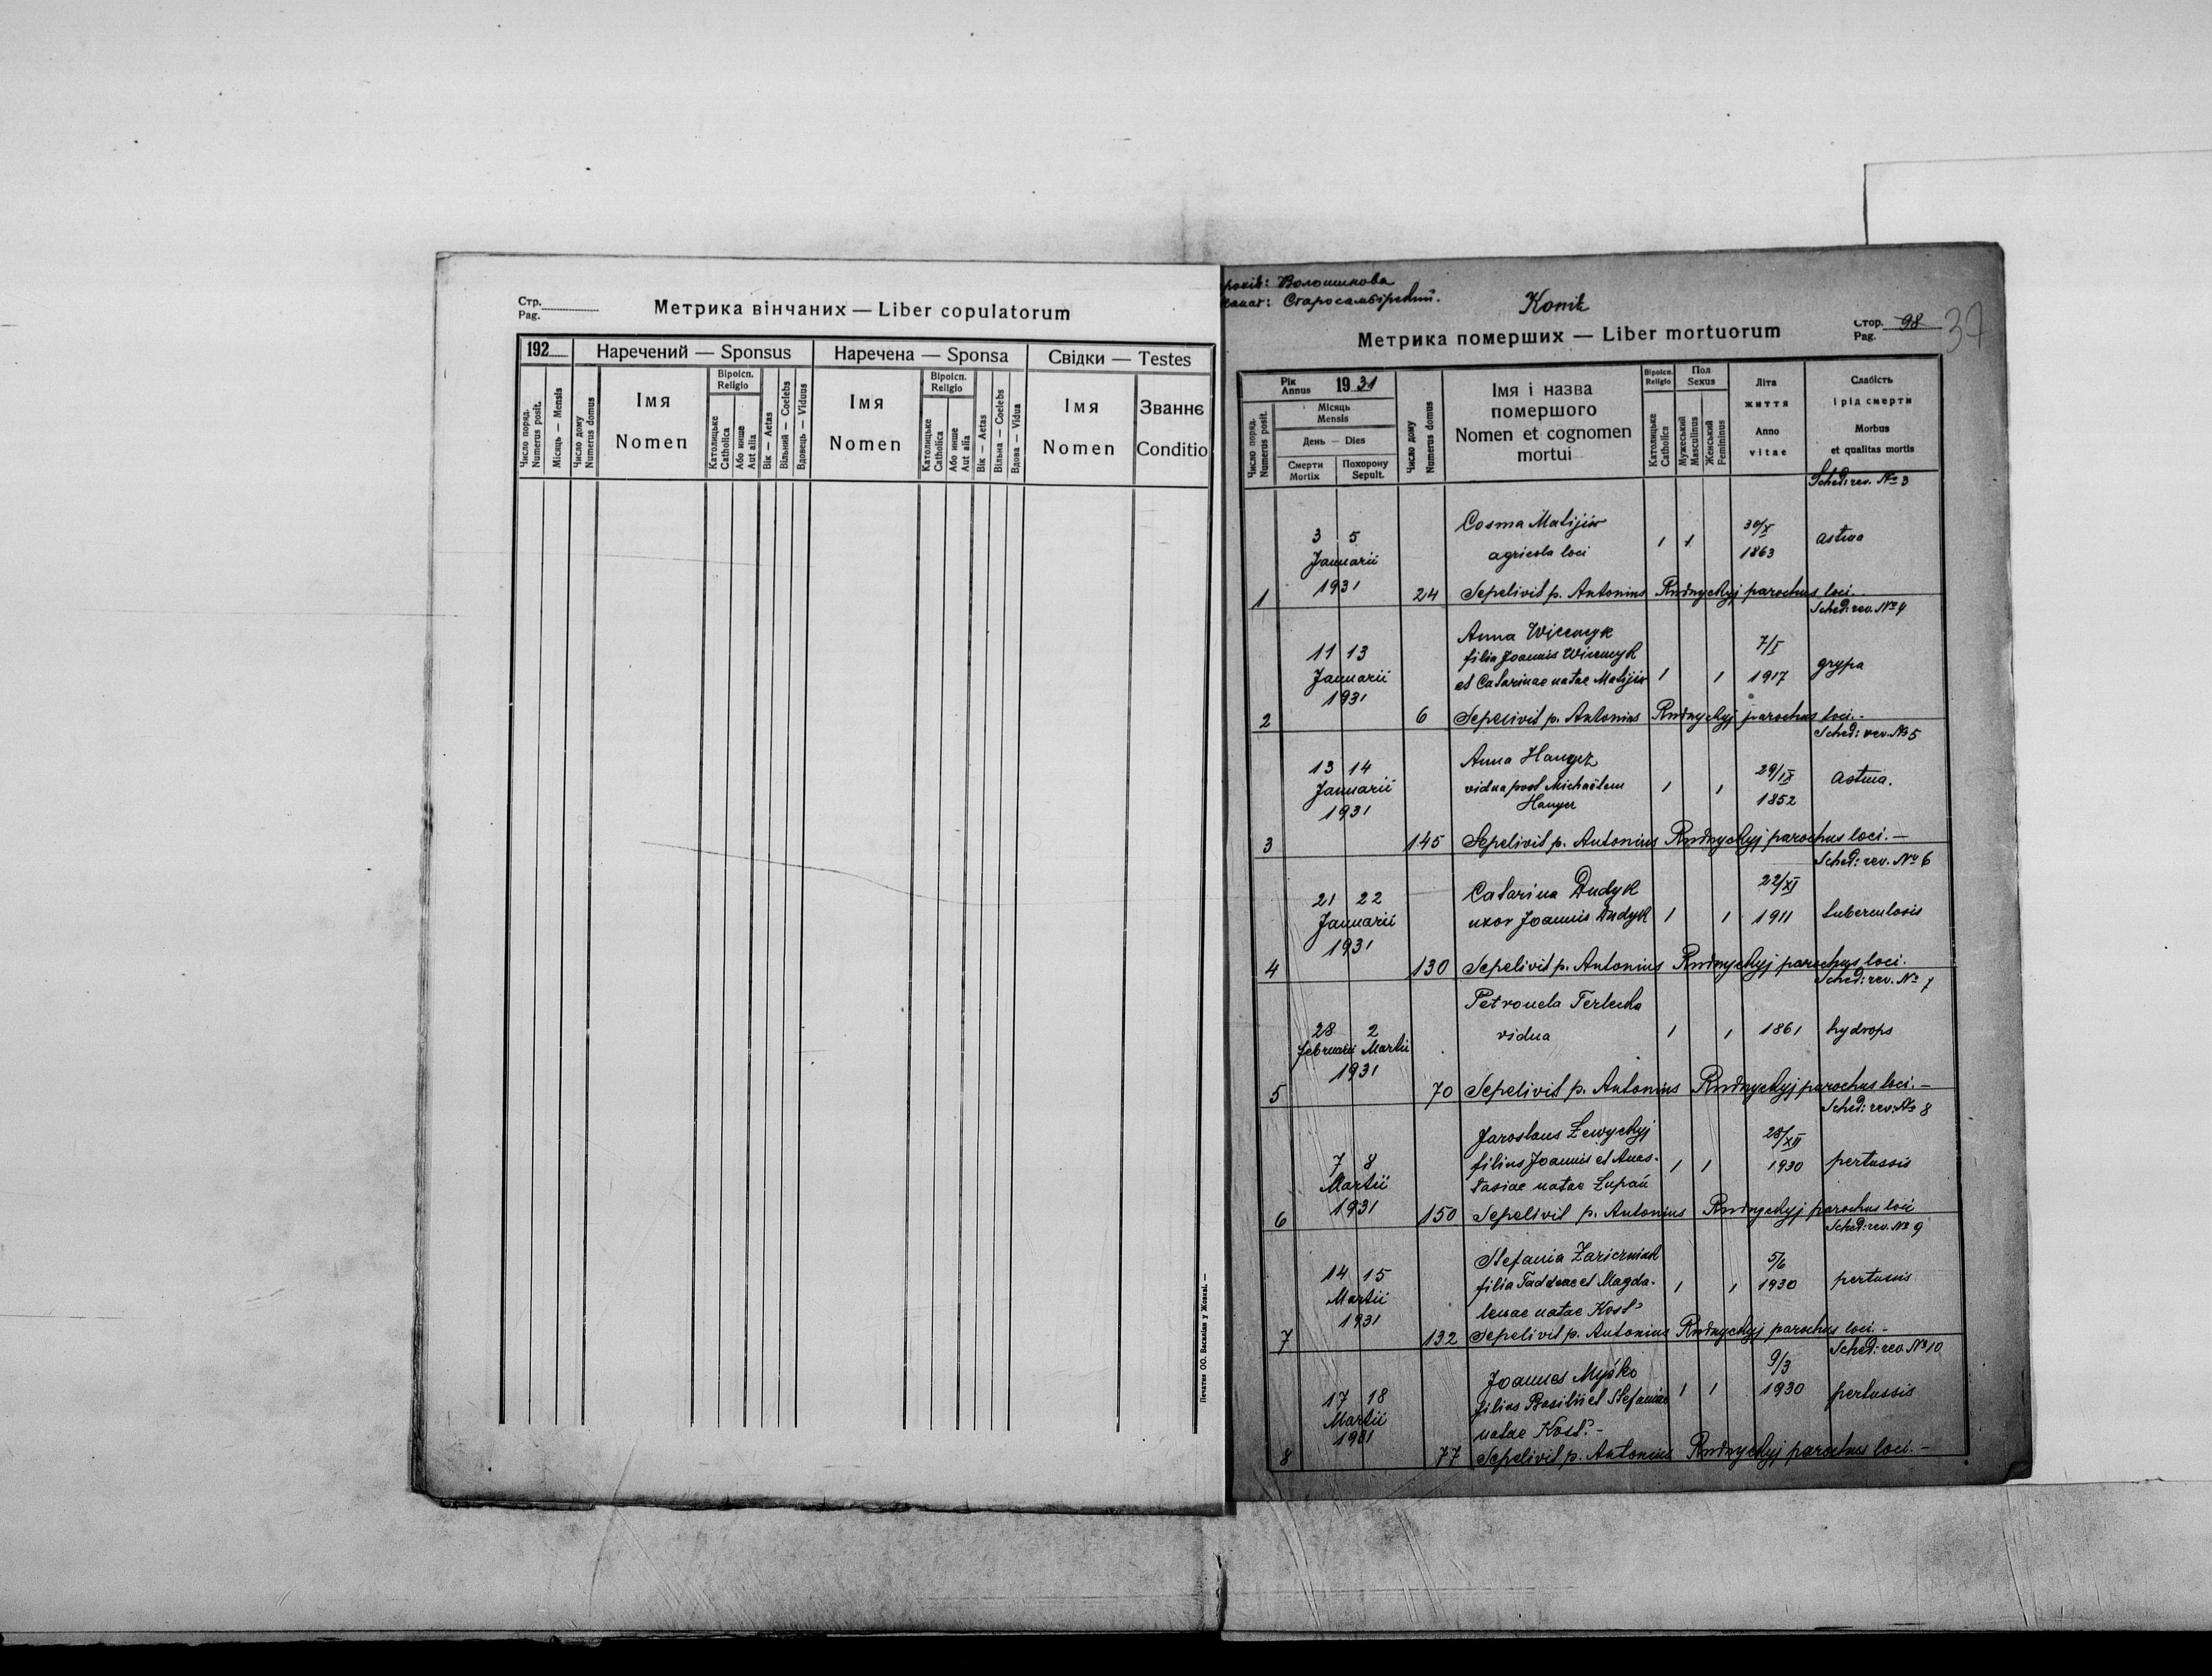 Стр.
Pag.
Метрика вінчаних — Liber copulatorum
192
Наречений — Sponsus
Наречена — Sponsa
Свідки — Testes
Число поряд.
Numerus posit.
Місяць — Mensis
Число дому
Numerus domus
Імя
Nomen
Віроісп.
Religio
Католицьке
Catholica
Або инше
Aut alia
Вік — Aetas
Вільний — Coelebs
Вдовець — Viduus
Імя
Nomen
Віроісп.
Religio
Католицьке
Catholica
Або инше
Aut alia
Вік — Aetas
Вільна — Coelebs
Вдова — Vidua
Імя
Nomen
Званнє
Conditio
Печатня ОО. Василіян у Жовкві. —
Волошинова
Старосамбірский.
Копія
Метрика померших — Liber mortuorum
Стор. 98
Pag.
37
Рік
Annus 1931
Число поряд.
Numerus posit.
Місяць
Mensis
День — Dies
Смерти
Mortix
Похорону
Sepult.
Число дому
Numerus domus
Імя і назва
помершого
Nomen et cognomen
mortui
Віроісп.
Religio
Католицьке
Catholica
Пол
Sexus
Мужеський
Masculinus
Женський
Femininus
Літа
життя
Anno
vitae
Слабість
і рід смерти
Morbus
et qualitas mortis
Sched: rev. № 3
3 5
Januarii
1931
Cosma Matijiw
agricola loci
1 1
30/X
1863
astma
1 24 Sepelivit p. Antonius Rudnyckyj parochus loci.
Sched: rev. № 4
11 13
Januarii
1931
Anna
filia Joannis
et Catarinae natae Matijiw
1 1
7/I
1917
grypa
2 6 Sepelivit p. Antonius Rudnyckyj parochus loci.-
Sched: rev. № 5
13 14
Januarii
1931
Anna
vidua post Michaëlem
1 1
29/IX
1852
astma.
3 145 Sepelivit p. Antonius Rudnyckyj parochus loci.—
Sched: rev. № 6
21 22
Januarii
1931
Catarina Dudyk
uxor Joannis Dudyk
1 1
22/XI
1911
tuberculosis
4 130 Sepelivit p. Antonius Rudnyckyj parochus loci.
Sched: rev. № 7
28 2
februarii Martii
1931
Petronela Terlecka
vidua
1 1
1861
hydrops
5 70 Sepelivit p. Antonius Rudnyckyj parochus loci.—
Sched: rev. № 8
7 8
Martii
1931
Jaroslaus Lewyckyj
filius Joannis et Anas-
tasiae natae Łupań
1 1
28/XII
1930
pertussis
6 150 Sepelivit p. Antonius Rudnyckyj parochus loci
Sched: rev. № 9
14 15
Martii
1931
Stefania Zariczniak
filia Taddeae et Magda-
lenae natae Kost'
1 1
5/6
1930
pertussis
7 132 Sepelivit p. Antonius Rudnyckyj parochus loci.-
Sched: rev. № 10
17 18
Martii
1931
Joannes Myśko
filius Basilii et Stefaniae
natae Kost'.-
1 1
9/3
1930
pertussis
8 77 Sepelivit p. Antonius Rudnyckyj parochus loci.—